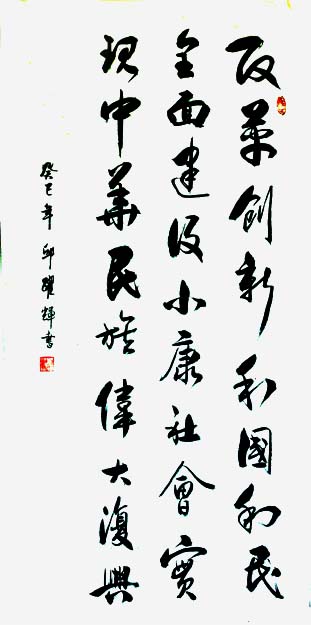 改革創新利國利民
全面建設小康社會實
現中華民族偉大復興
癸巳年邱躍輝書